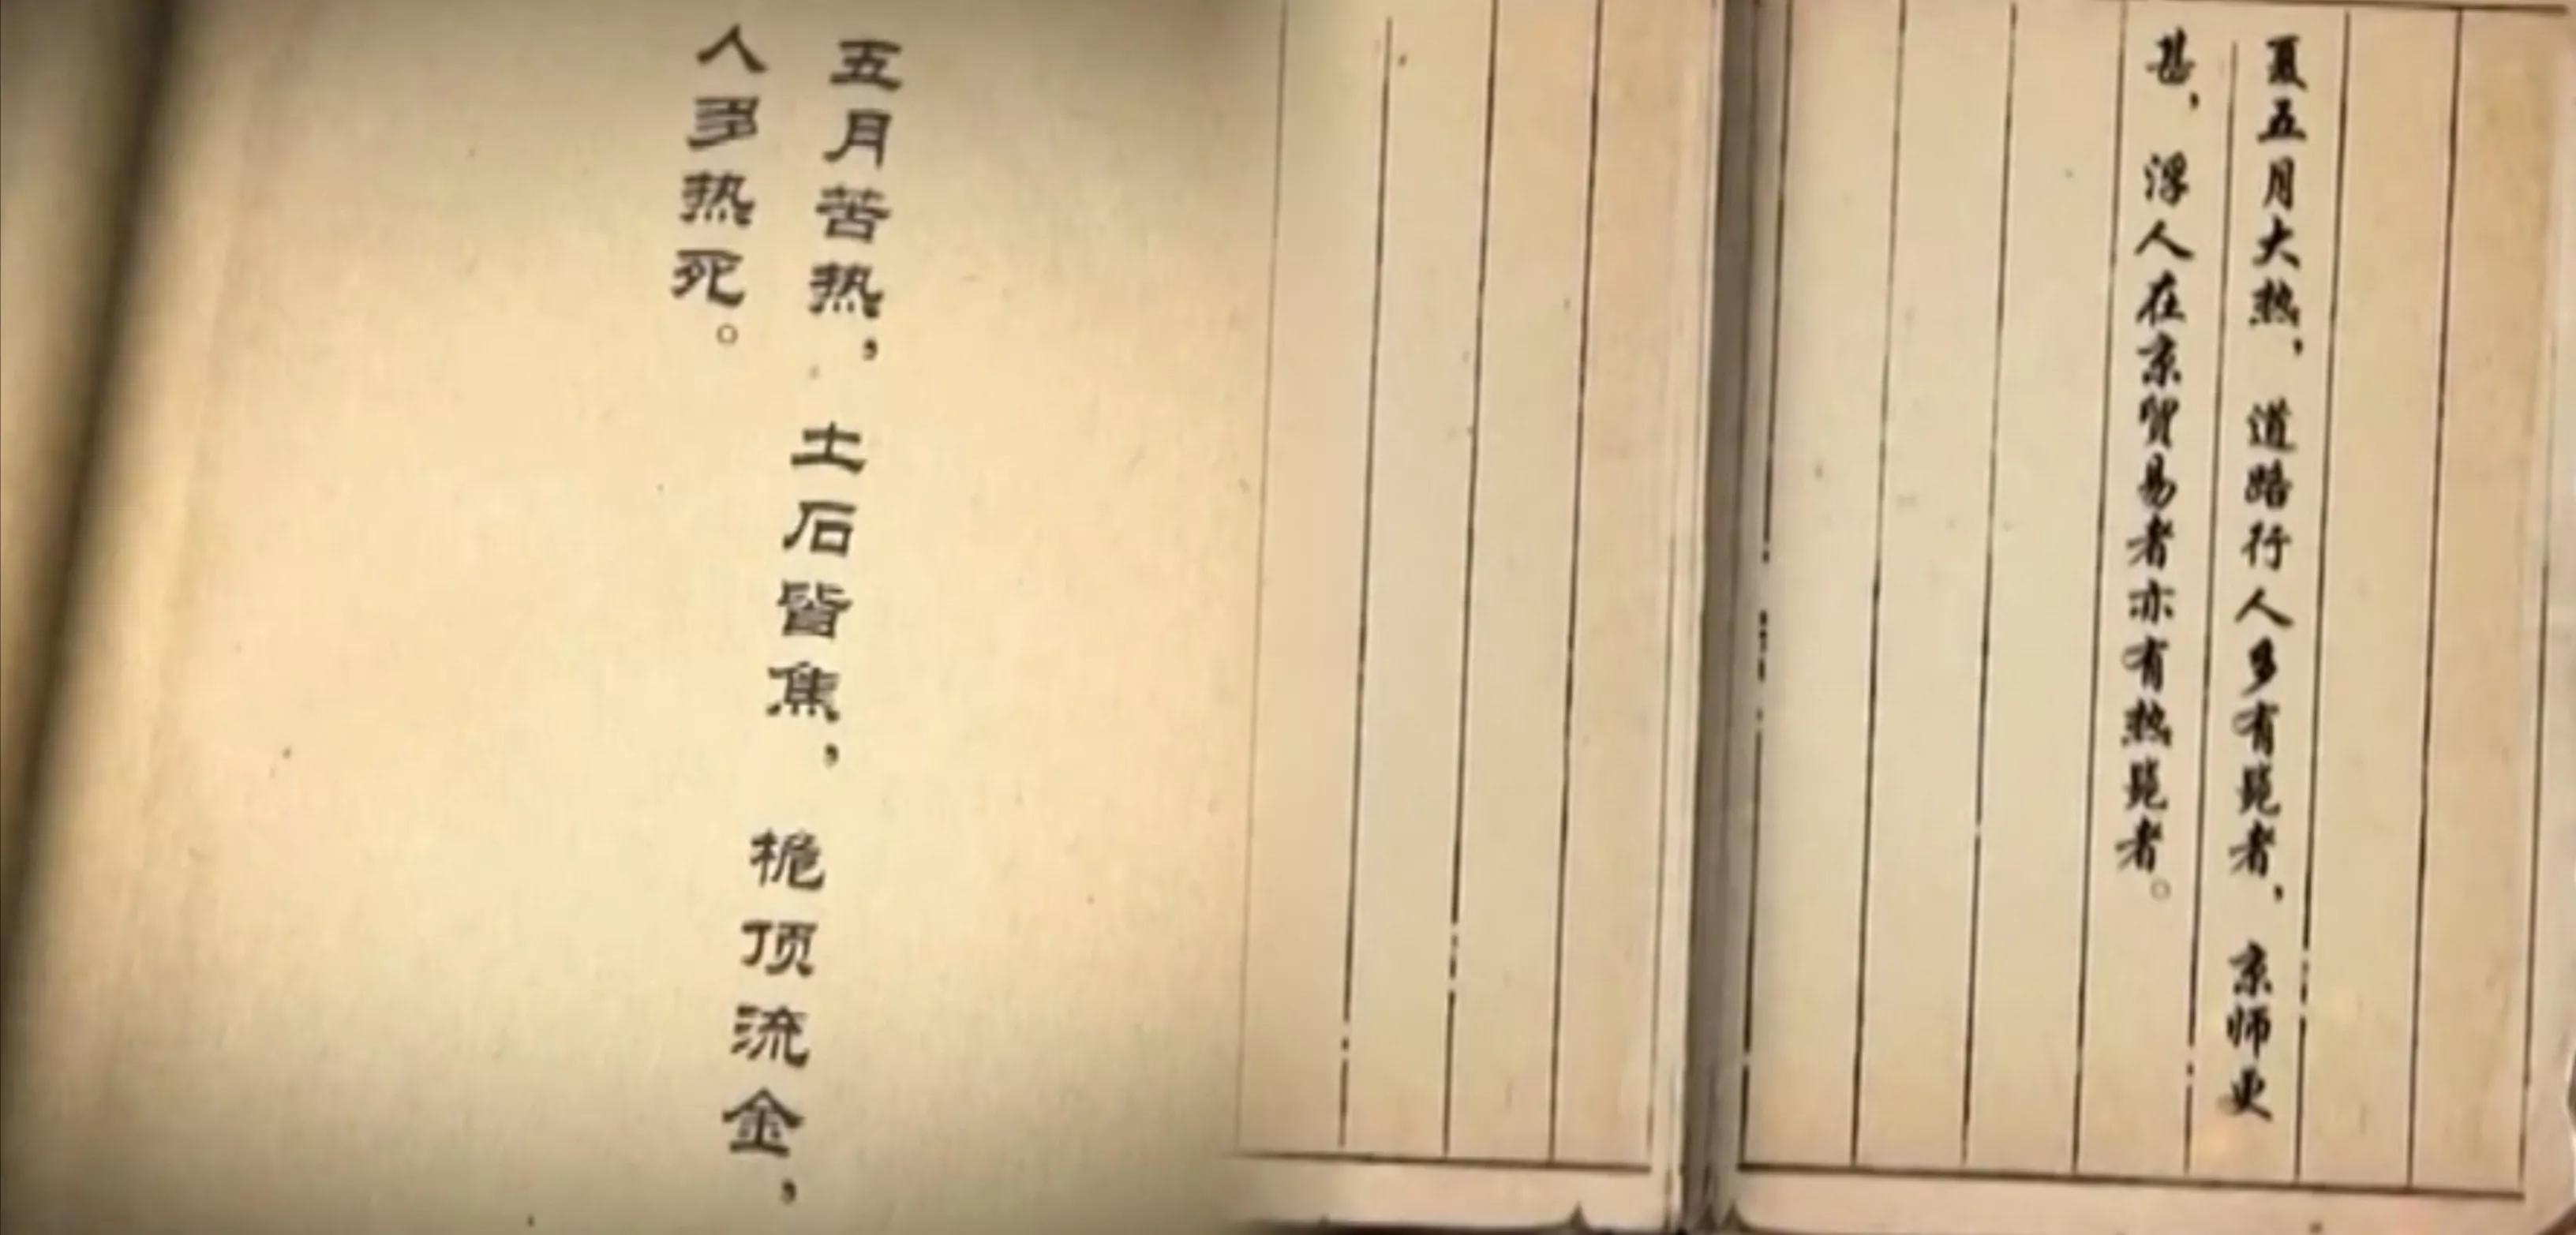 夏五月大热，道路行人多有毙者，京师更
甚，浮人在京贸易者亦有热毙者。
五月苦热，土石皆焦，桅顶流金，
人多热死。